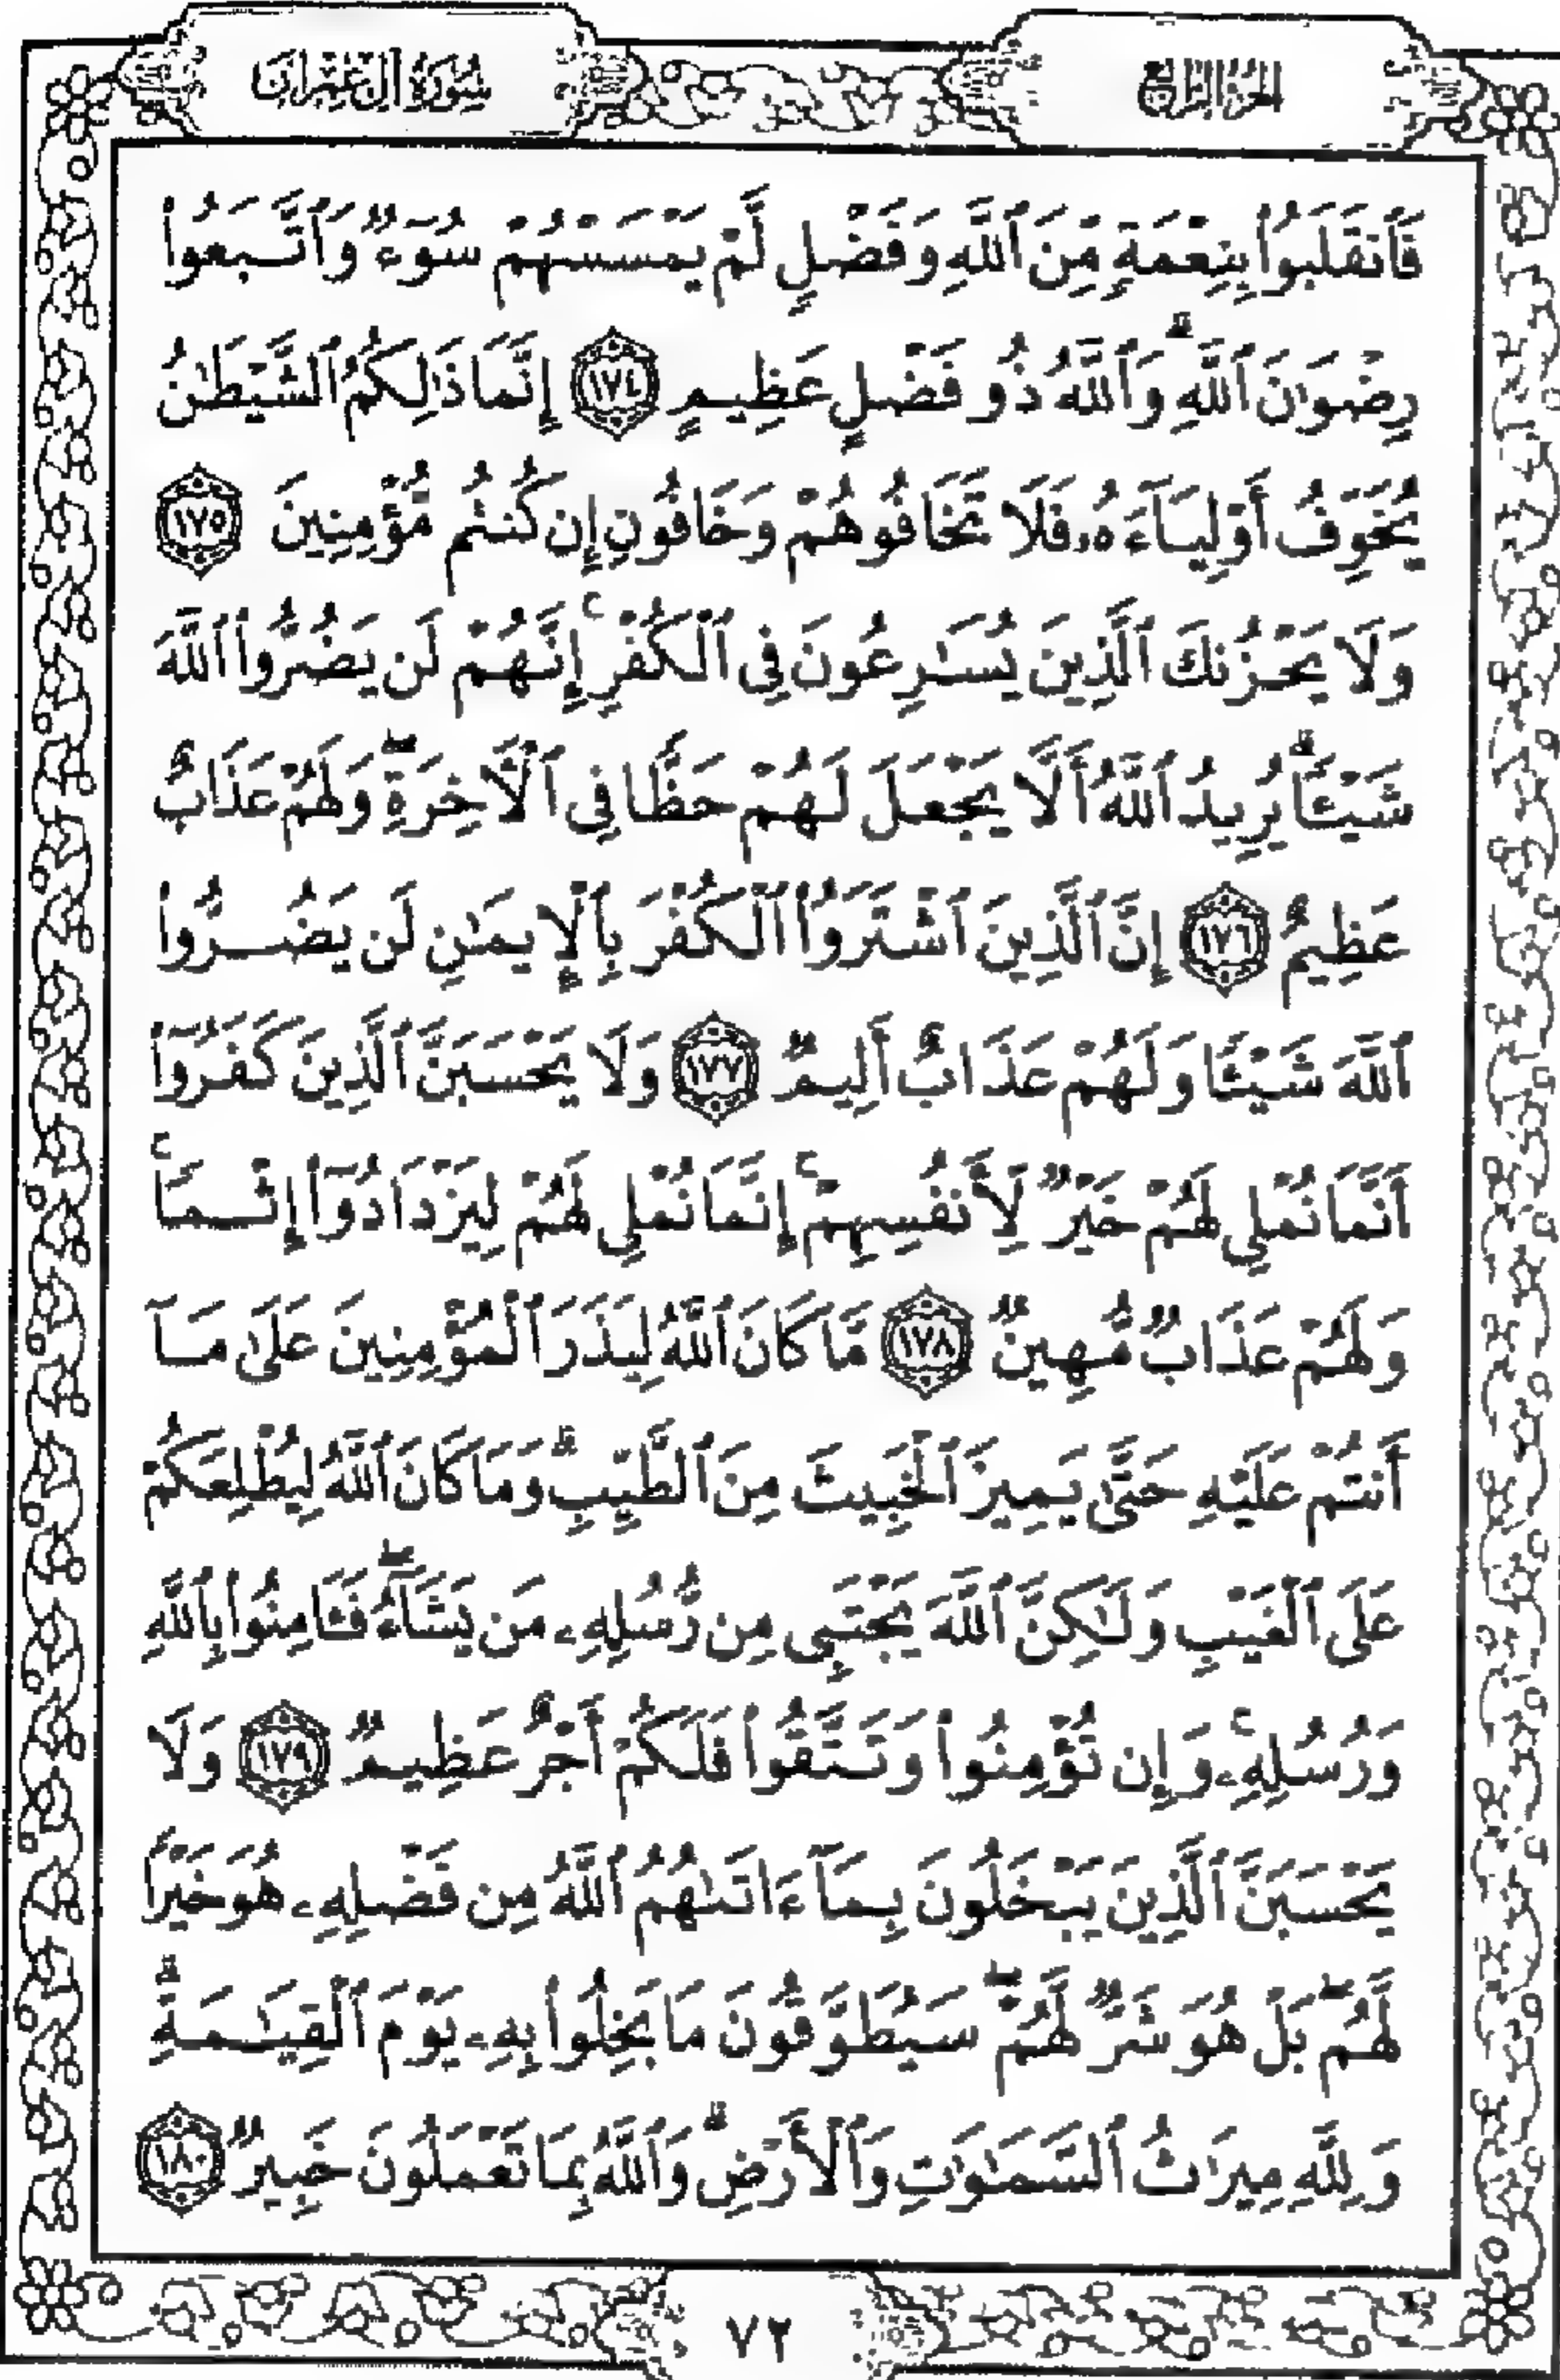 الجزء الرابع
سورة آل عمران
فَٱنقَلَبُوا۟ بِنِعْمَةٍ مِّنَ ٱللَّهِ وَفَضْلٍ لَّمْ يَمْسَسْهُمْ سُوٓءٌ وَٱتَّبَعُوا۟
رِضْوَٰنَ ٱللَّهِ ۗ وَٱللَّهُ ذُو فَضْلٍ عَظِيمٍ ١٧٤ إِنَّمَا ذَٰلِكُمُ ٱلشَّيْطَٰنُ
يُخَوِّفُ أَوْلِيَآءَهُۥ فَلَا تَخَافُوهُمْ وَخَافُونِ إِن كُنتُم مُّؤْمِنِينَ ١٧٥
وَلَا يَحْزُنكَ ٱلَّذِينَ يُسَٰرِعُونَ فِى ٱلْكُفْرِ ۚ إِنَّهُمْ لَن يَضُرُّوا۟ ٱللَّهَ
شَيْـًٔا ۗ يُرِيدُ ٱللَّهُ أَلَّا يَجْعَلَ لَهُمْ حَظًّا فِى ٱلْـَٔاخِرَةِ ۖ وَلَهُمْ عَذَابٌ
عَظِيمٌ ١٧٦ إِنَّ ٱلَّذِينَ ٱشْتَرَوُا۟ ٱلْكُفْرَ بِٱلْإِيمَٰنِ لَن يَضُرُّوا۟
ٱللَّهَ شَيْـًٔا وَلَهُمْ عَذَابٌ أَلِيمٌ ١٧٧ وَلَا يَحْسَبَنَّ ٱلَّذِينَ كَفَرُوٓا۟
أَنَّمَا نُمْلِى لَهُمْ خَيْرٌ لِّأَنفُسِهِمْ ۚ إِنَّمَا نُمْلِى لَهُمْ لِيَزْدَادُوٓا۟ إِثْمًا ۚ
وَلَهُمْ عَذَابٌ مُّهِينٌ ١٧٨ مَّا كَانَ ٱللَّهُ لِيَذَرَ ٱلْمُؤْمِنِينَ عَلَىٰ مَآ
أَنتُمْ عَلَيْهِ حَتَّىٰ يَمِيزَ ٱلْخَبِيثَ مِنَ ٱلطَّيِّبِ ۗ وَمَا كَانَ ٱللَّهُ لِيُطْلِعَكُمْ
عَلَى ٱلْغَيْبِ وَلَٰكِنَّ ٱللَّهَ يَجْتَبِى مِن رُّسُلِهِۦ مَن يَشَآءُ ۖ فَـَٔامِنُوا۟ بِٱللَّهِ
وَرُسُلِهِۦ ۚ وَإِن تُؤْمِنُوا۟ وَتَتَّقُوا۟ فَلَكُمْ أَجْرٌ عَظِيمٌ ١٧٩ وَلَا
يَحْسَبَنَّ ٱلَّذِينَ يَبْخَلُونَ بِمَآ ءَاتَىٰهُمُ ٱللَّهُ مِن فَضْلِهِۦ هُوَ خَيْرًا
لَّهُم ۖ بَلْ هُوَ شَرٌّ لَّهُمْ ۖ سَيُطَوَّقُونَ مَا بَخِلُوا۟ بِهِۦ يَوْمَ ٱلْقِيَٰمَةِ ۗ
وَلِلَّهِ مِيرَٰثُ ٱلسَّمَٰوَٰتِ وَٱلْأَرْضِ ۗ وَٱللَّهُ بِمَا تَعْمَلُونَ خَبِيرٌ ١٨٠
٧٢